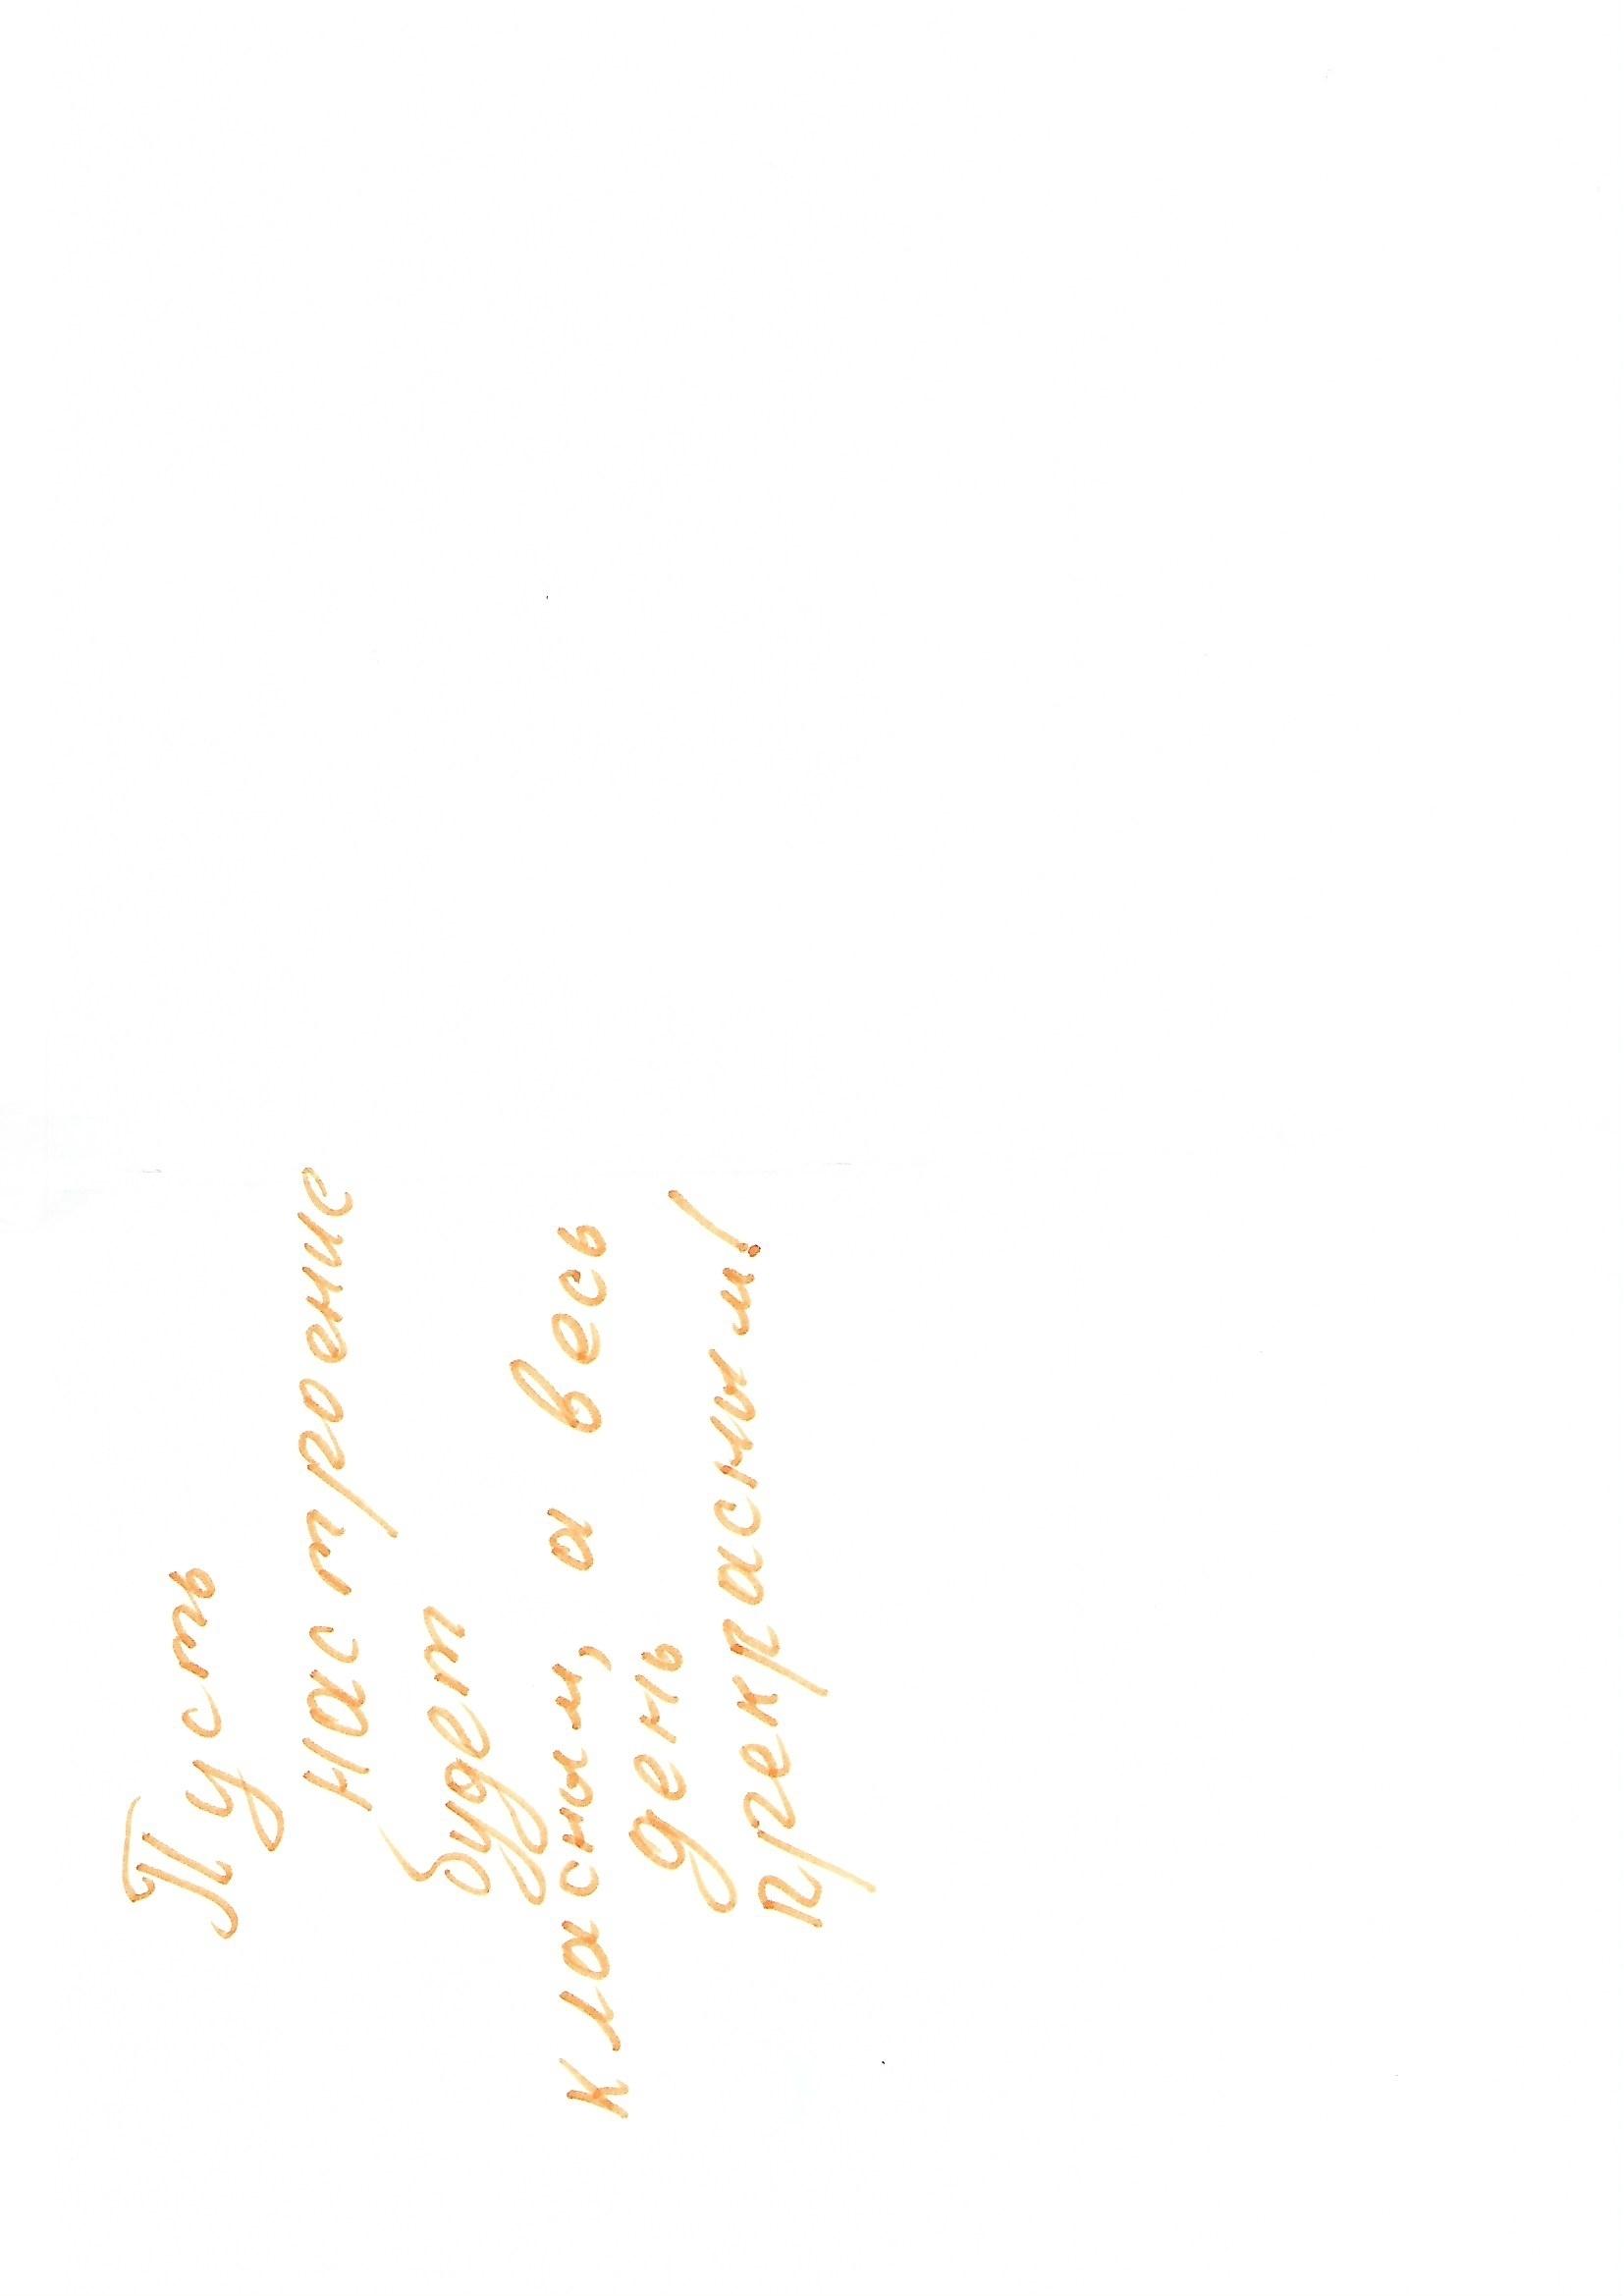 Пусть
настроение
будет
класным, а весь
день
прекрасным!